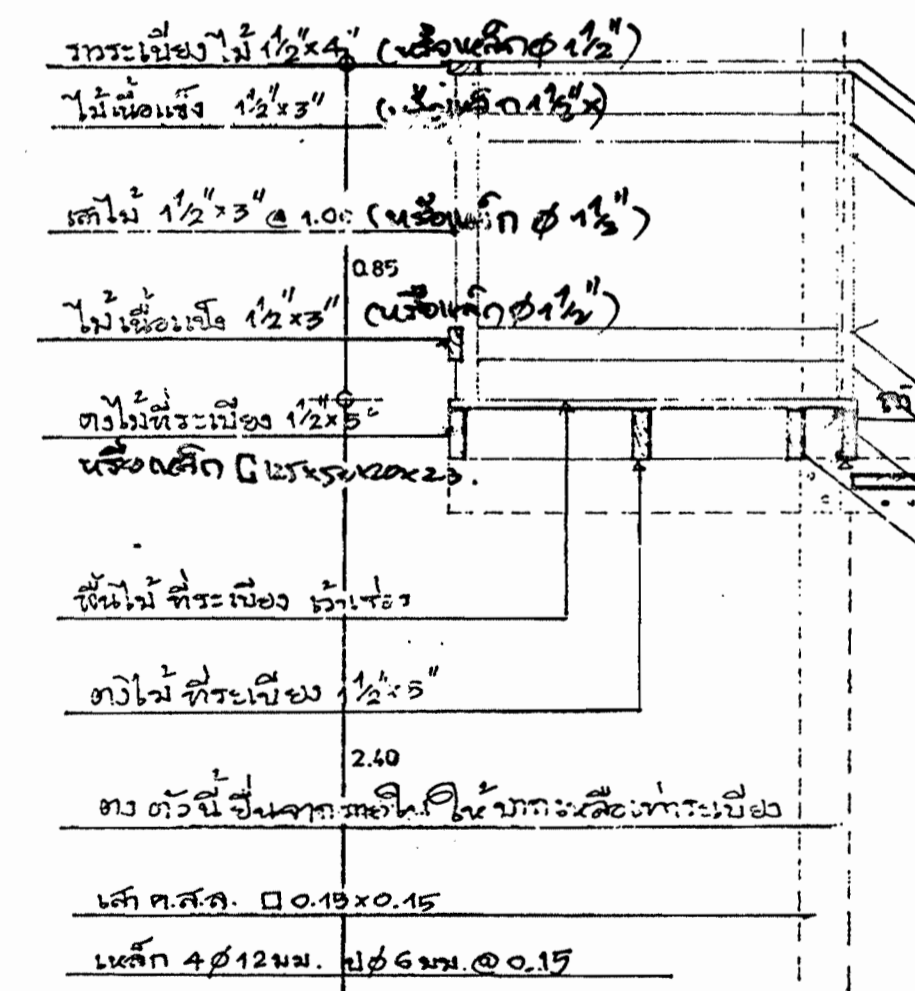 ราวระเบียงไม้ 1½"×4" (หรือเหล็ก ϕ 1½")
ไม้เนื้อแข็ง 1½"×3"
เสาไม้ 1½"×3" @ 1.00 (หรือเหล็ก ϕ 1½")
0.85
ไม้เนื้อแข็ง 1½"×3" (หรือเหล็ก ϕ 1½")
ตงไม้ที่ระเบียง 1½"×5"
หรือเหล็ก C 125×50×20×2.3.
พื้นไม้ ที่ระเบียง เว้นร่อง
ตงไม้ ที่ระเบียง 1½"×5"
2.40
ตง ตัวนี้ ยื่นจากภายใน ให้บากเหลือเท่าระเบียง
เสา ค.ส.ล. □ 0.15×0.15
เหล็ก 4 ϕ 12 มม. ป ϕ 6 มม. @ 0.15